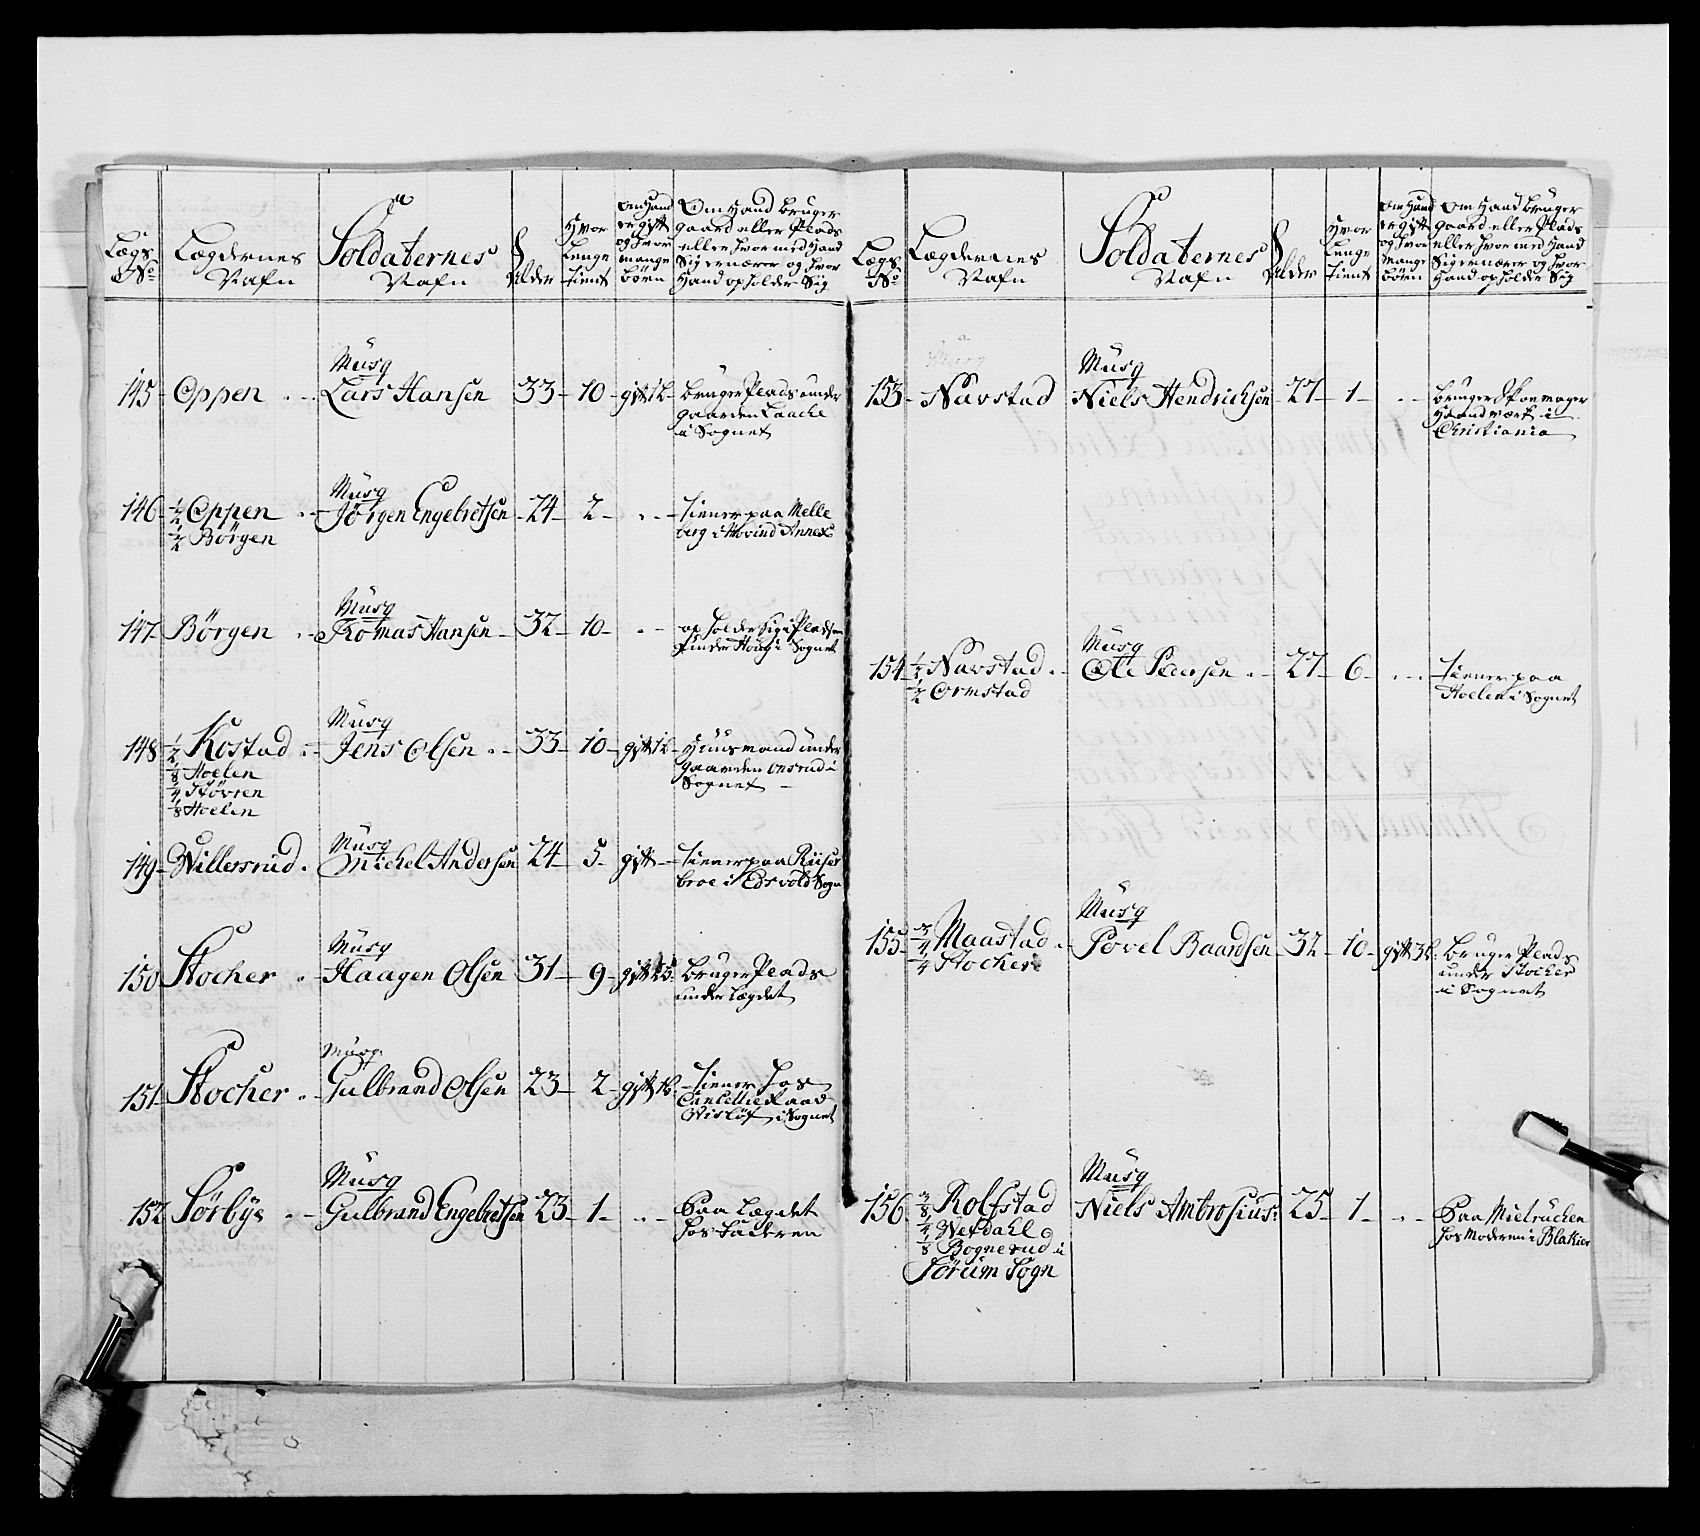 Lægs
No
Lægdernes
Nafn
Soldaternes
Nafn
Alder
Hvor
lenge
tient
Om Hand
er gift
og hvor
mange
börn
Om Hand bruger
gaard eller Plads
eller hvormed Hand
Sig ernærer og hvor
Hand opholder Sig
145 Oppen
Musq
Lars Hansen 33 10 gift 1 b
bruger Plads under
gaarden Laache
i Sognet
146 1/2 Oppen
1/2 Börgen
Musq
Jörgen Engebretsen 24 2
tiener paa Melle
berg i Hovind Annex
147 Börgen
Musq
Thomas Hansen 32 10
opholder Sig i Pladsen
under Houg i Sognet
148 1/2 Kostad
1/8 Hoelen
1/4 Stövren
1/8 Hoelen
Musq
Jens Olsen 33 10 gift 1 b
Huusmand under
gaarden Onsrud i
Sognet
149 Willersrud
Musq
Michel Andersen 24 5 gift
tiener paa Riiser
broe i Edsvold Sogn
150 Stocher
Musq
Haagen Olsen 31 9 gift
bruger Plads
under Lægdet
151 Stocher
Musq
Gulbrand Olsen 23 2 gift 1 b
tiener hos
Cancellie Raad
Wislöf i Sognet
152 Sörbye
Musq
Gulbrand Engebretsen 23 1
Paa Lægdet
hos Faderen
Lægs
No
Lægdernes
Nafn
Soldaternes
Nafn
Alder
Hvor
lenge
tient
Om Hand
er gift
og hvor
mange
börn
Om Hand bruger
gaard eller Plads
eller hvormed Hand
Sig ernærer og hvor
Hand opholder Sig
153 Navstad
Musq
Niels Hendrichsen 27 1
bruger Skoemager
Haandværk i
Christiania
154 1/2 Navstad
1/2 Ormstad
Musq
Ole Pedersen 27 6
tiener paa
Hoelen i Sognet
155 3/4 Maastad
1/4 Stocher
Musq
Povel Baardsen 32 10 gift 3 b
Bruger Plads
under Stocher
i Sognet
156 Rolfstad
1/4 Nefdahl
1/8 Bognerud i
Sörum Sogn
Musq
Niels Ambrosius: 25 1
Paa Mielruchen
hos Moderen i Blakier